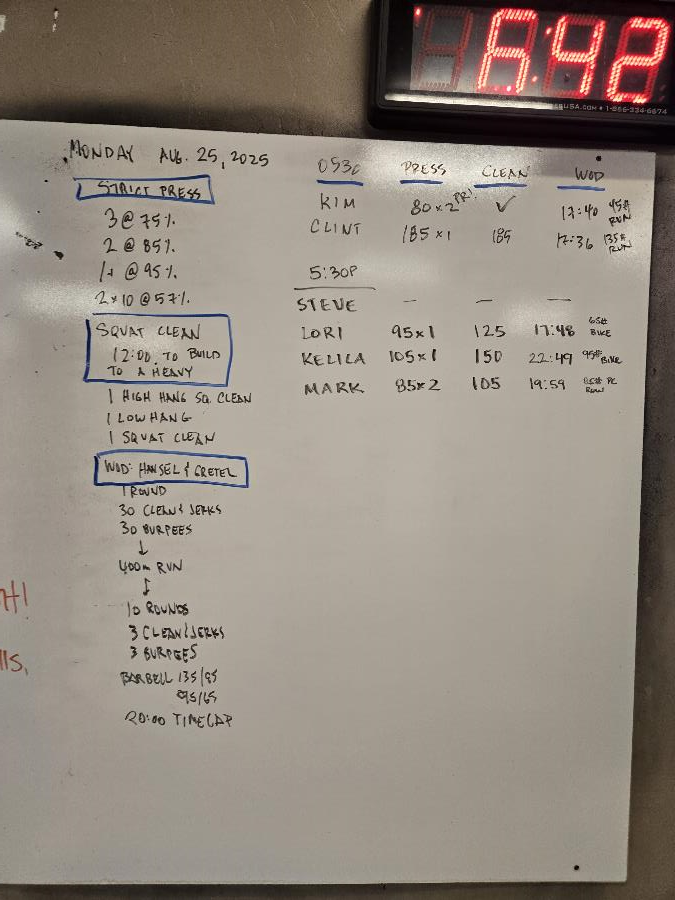 6:42
USA.COM • 1-866-334-6674
MONDAY AUG. 25, 2025
STRICT PRESS
3 @ 75%
2 @ 85%
1+ @ 95%
2×10 @ 57%
SQUAT CLEAN
12:00 TO BUILD
TO A HEAVY
1 HIGH HANG SQ. CLEAN
1 LOW HANG
1 SQUAT CLEAN
WOD: HANSEL & GRETEL
1 ROUND
30 CLEAN & JERKS
30 BURPEES
↓
400m RUN
↓
10 ROUNDS
3 CLEAN & JERKS
3 BURPEES
BARBELL 135/95
95/65
20:00 TIME CAP
0530 PRESS CLEAN WOD
KIM 80×2 PR! ✓ 17:40 95# RUN
CLINT 185×1 185 17:36 135# RUN
5:30P
STEVE — — —
LORI 95×1 125 17:48 65# BIKE
KELILA 105×1 150 22:49 95# BIKE
MARK 85×2 105 19:59 85# PC ROW
HT!
LLS,